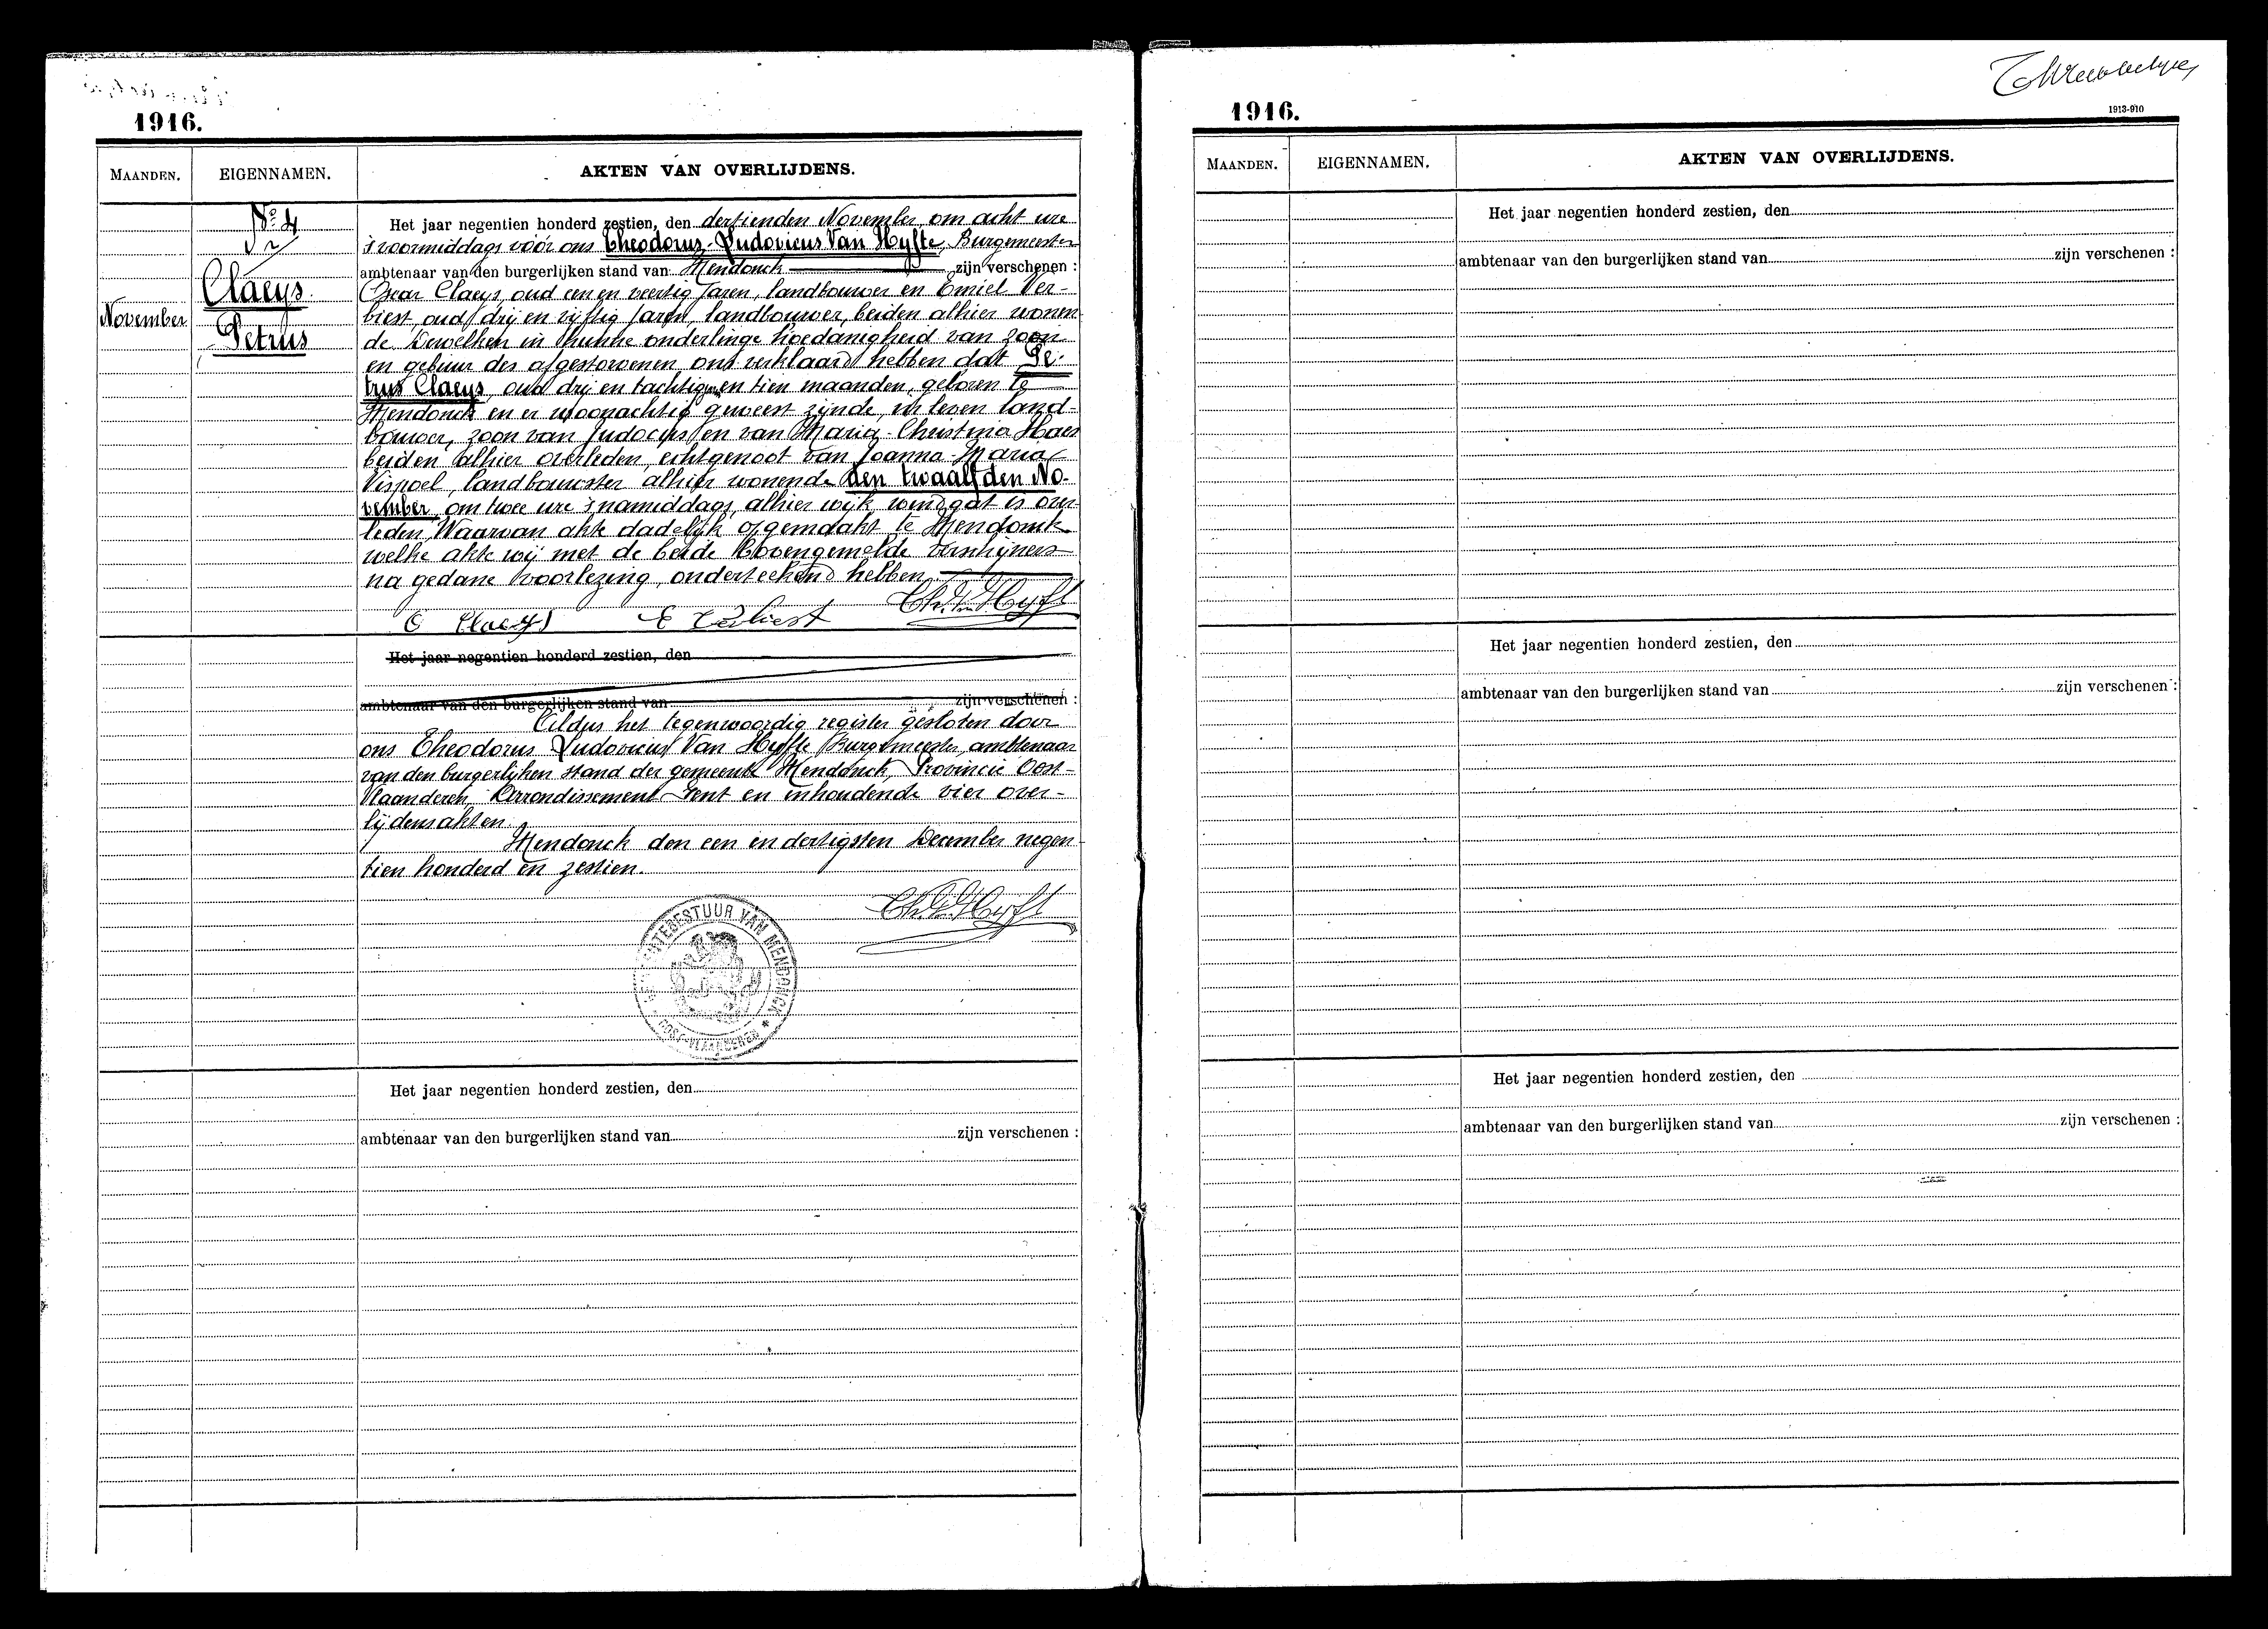 1916.
MAANDEN. EIGENNAMEN. AKTEN VAN OVERLIJDENS.
No 4
Claeys
November
Petrus
Het jaar negentien honderd zestien, den dertienden November om acht ure
's voormiddags vóór ons Theodorus-Ludovicus Van Hyfte, Burgemeester
ambtenaar van den burgerlijken stand van Mendonck zijn verschenen :
Oscar Claeys, oud een en veertig jaren, landbouwer en Emiel Ver-
liest, oud drij en vijftig jaren, landbouwer, beiden alhier wonen
de Dewelken in hunne onderlinge hoedanigheid van zoon
en gebuur des afgestorvenen ons verklaard hebben dat Pe-
trus Claeys, oud drij en tachtig en tien maanden, geboren te
Mendonck en er woonachtig geweest zijnde, in leven land-
bouwer, zoon van Judocus en van Maria-Christina Haes
beiden alhier overleden, echtgenoot van Joanna-Maria
Vispoel, landbouwster alhier wonende den twaalfden No-
vember, om twee ure 's namiddags, alhier wijk windgat is over
leden, Waarvan akte dadelijk opgemaakt te Mendonck
welke akte wij met de beide bovengemelde verschijners
na gedane voorlezing, onderteekend hebben.
O Claeys E Verliest Th. L. Van Hyfte
Het jaar negentien honderd zestien, den
ambtenaar van den burgerlijken stand van zijn verschenen :
Aldus het tegenwoordig register gesloten door
ons Theodorus Ludovicus Van Hyfte Burgemeester, ambtenaar
van den burgerlijken stand der gemeente Mendonck, Provincie Oost-
Vlaanderen, Arrondissement Gent en inhoudende vier over-
lijdensakten.
Mendonck den een en dertigsten December negen
tien honderd en zestien.
Th. L. Van Hyfte
GEMEENTEBESTUUR VAN MENDONCK
* OOST-VLAANDEREN *
Het jaar negentien honderd zestien, den
ambtenaar van den burgerlijken stand van zijn verschenen :
1916.
1913-910
MAANDEN. EIGENNAMEN. AKTEN VAN OVERLIJDENS.
Het jaar negentien honderd zestien, den
ambtenaar van den burgerlijken stand van zijn verschenen :
Het jaar negentien honderd zestien, den
ambtenaar van den burgerlijken stand van zijn verschenen :
Het jaar negentien honderd zestien, den
ambtenaar van den burgerlijken stand van zijn verschenen :